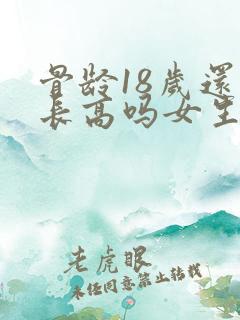 骨龄18歲還
長高吗女生
老虎眼
未经同意禁止转载